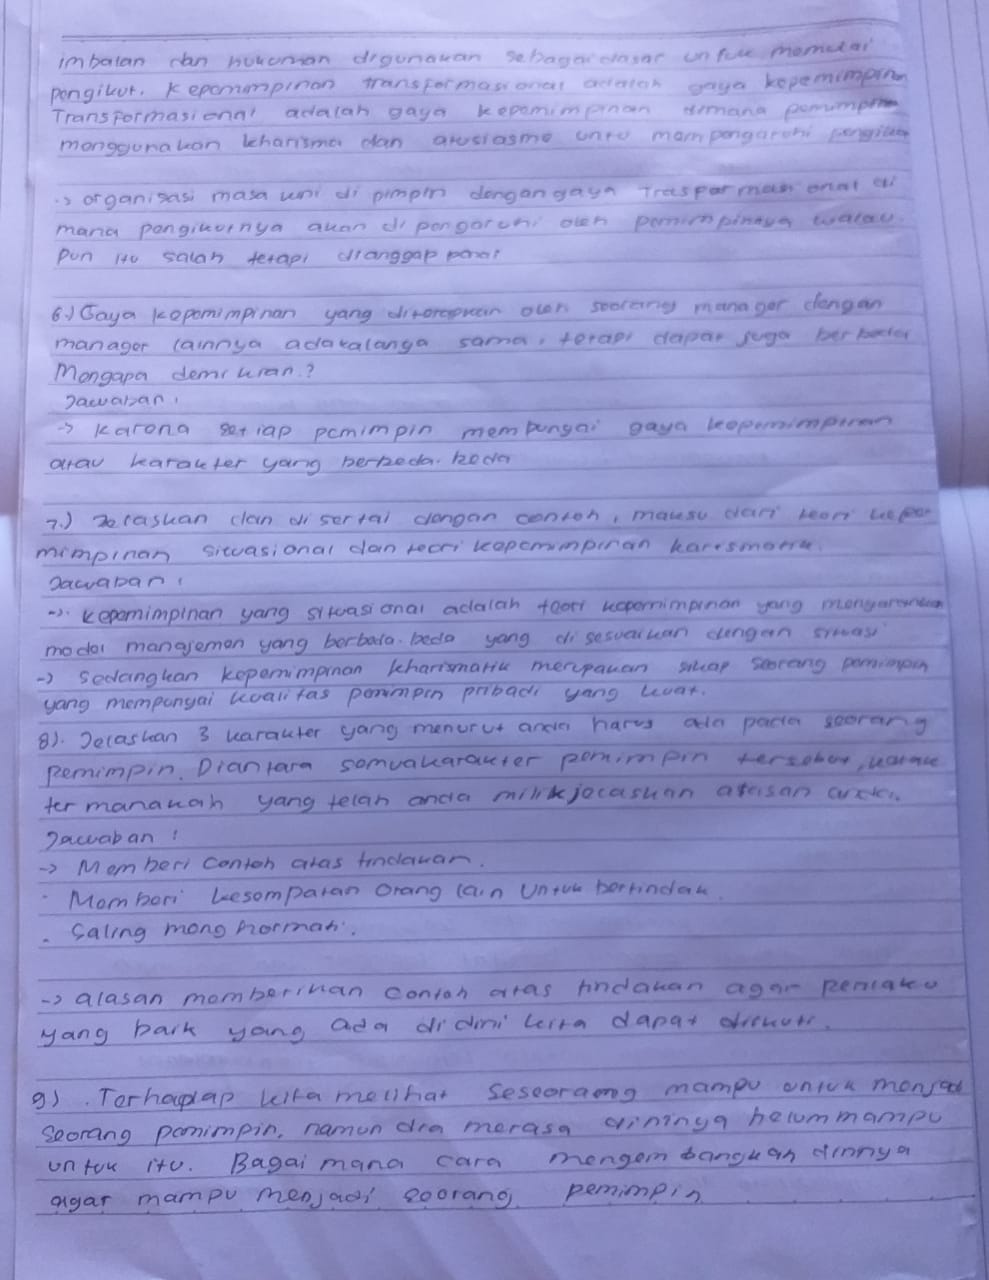 imbalan dan hukuman digunakan sebagai dasar untuk memulai
pengikut. Kepemimpinan transformasional adalah gaya kepemimpinan
Transformasional adalah gaya kepemimpinan dimana pemimpin
menggunakan kharisma dan atusiasme untu mempengaruhi pengikut
-> organisasi masa kini di pimpin dengan gaya Trasformasional di
mana pengikutnya akan di pengaruhi oleh pemimpinnya walau
pun itu salah tetapi dianggap benar
6.) Gaya kepemimpinan yang diterapkan oleh seorang manager dengan
manager lainnya adakalanga sama, tetapi dapat juga berbeda
Mengapa demikian.?
Jawaban,
-> Karena setiap pemimpin mempungai gaya kepemimpinan
atau karakter yang berbeda-beda
7.) Jelaskan dan di sertai dengan contoh, maksu dari teori kepe
mimpinan situasional dan teori kepemimpinan karismatik.
Jawaban,
->. kepemimpinan yang situasional adalah teori kepemimpinan yang menyarankan
model manajemen yang berbeda-beda yang di sesuaikan dengan situasi
-> Sedangkan kepemimpinan kharismatik merupakan sikap seorang pemimpin
yang mempunyai kualitas pemimpin pribadi yang kuat.
8). Jelaskan 3 karakter yang menurut anda harus ada pada seorang
pemimpin. Diantara semuakarakter pemimpin tersebut, karak
ter manakah yang telah anda milik jelaskan alasan anda.
Jawaban :
-> Memberi contoh atas tindakan.
- Memberi kesempatan orang lain untuk bertindak.
- Saling menghormati.
-> alasan memberikan contoh atas tindakan agar perilaku
yang baik yang ada di diri kita dapat diikuti.
9) . Terhadap kita melihat seseorang mampu untuk menjadi
seorang pemimpin, namun dia merasa dirinya belum mampu
untuk itu. Bagaimana cara mengembangkan dirinya
agar mampu menjadi seorang pemimpin